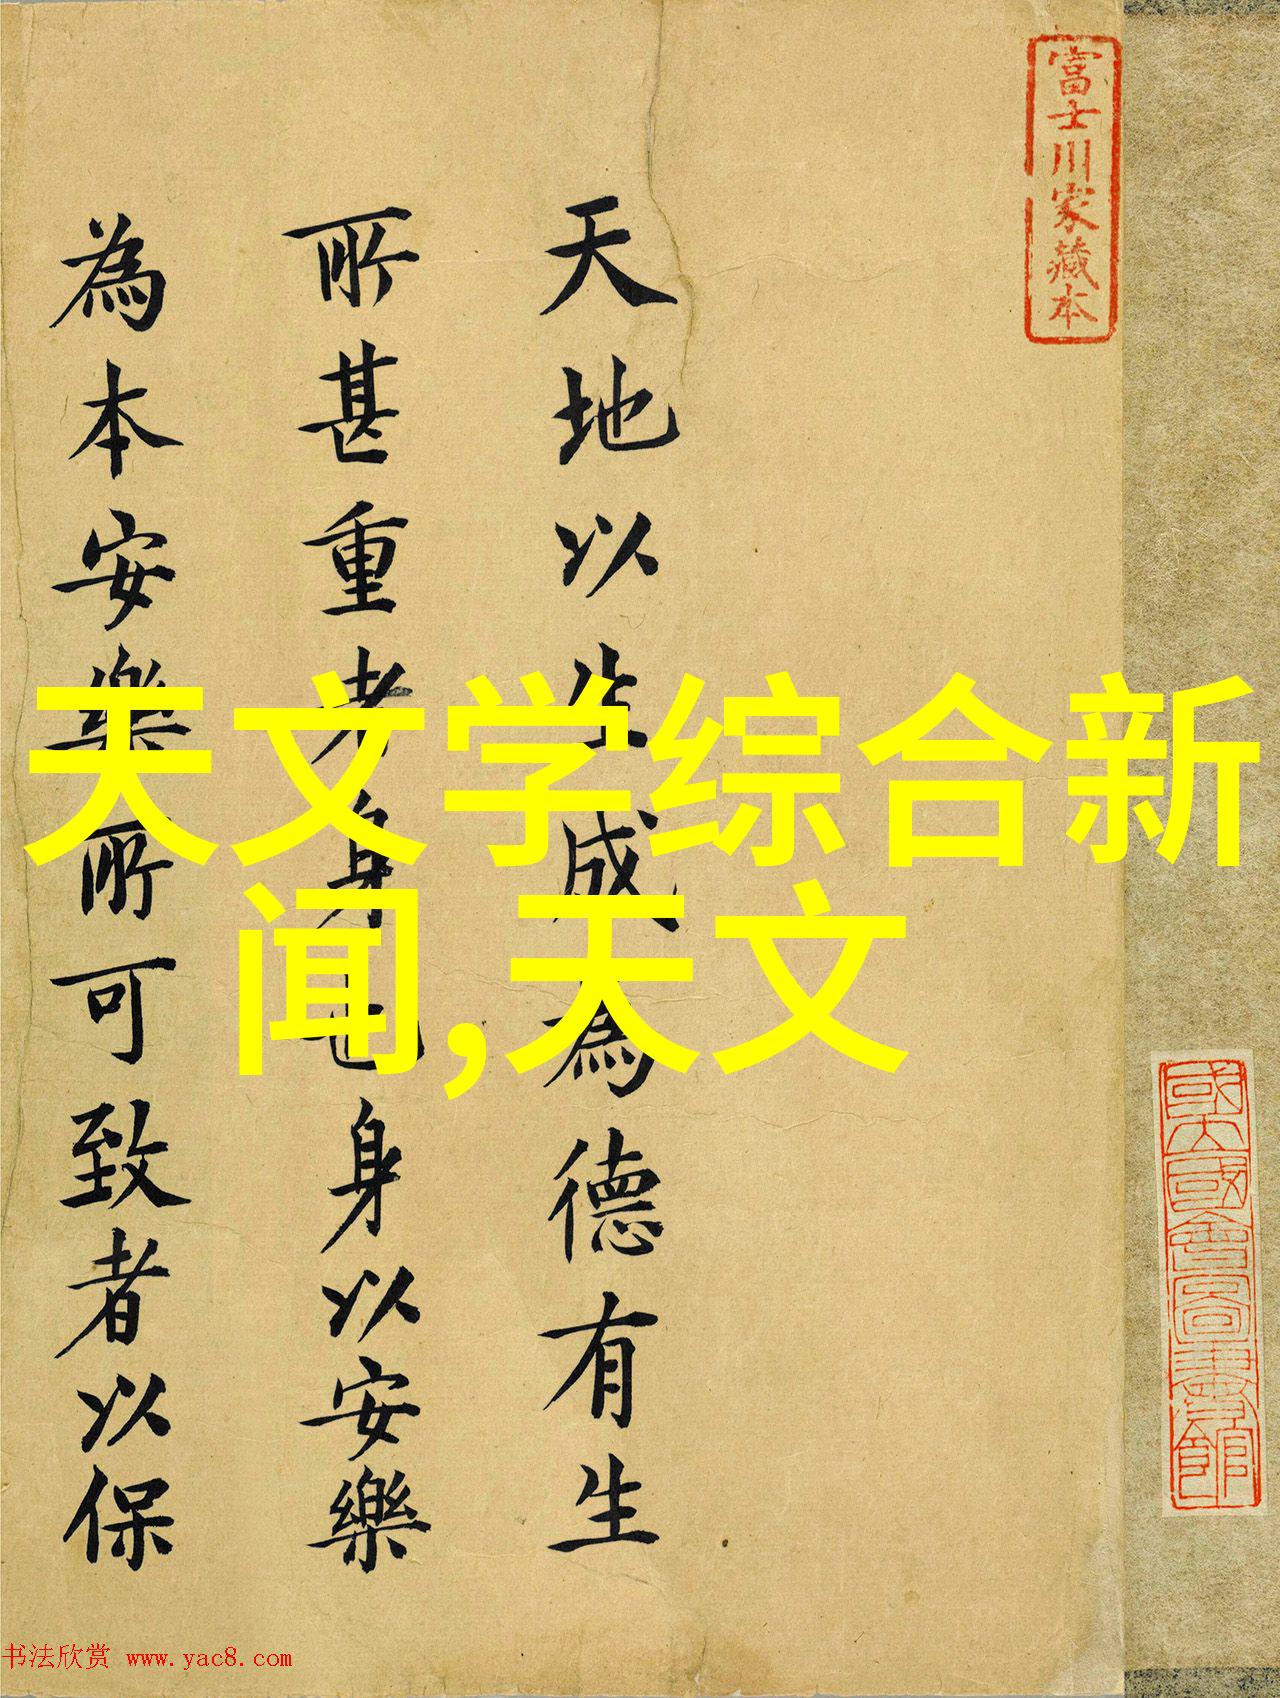 富士川家藏本
天地以生成為德有生
所甚重者身也身以安樂
為本安樂所可致者以保
天文学综合新
闻,天文
书法欣赏 www.yac8.com